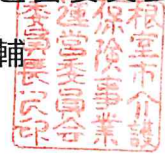 輔
根室市介護
保険事業
運営委員会
委員長之印